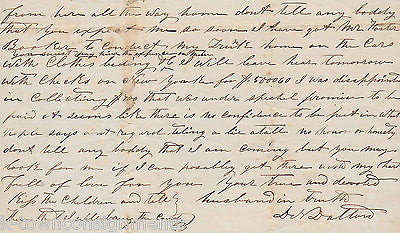 from her all the way home dont tell any boddy
that you expect me so soon I have got Mr Foster
to conduct my Trunk home on the Cars
with Clothes beding &c I will leave hear tomorrow
with Checks on New York for $500060 I was disappointe
in Collecting $ that was under special promise to be
paid & seems like there is no confidence to be put in what
says a not regard teling a lie atall no honor or honesty
dont tell any boddy that I am coming but you may
look for me if I can posably get there with my heart
full of love from you Your true and devoted
Kiss the Children and tell husband in truth
them that I will bring the candy D N Datford
k-townconsignments